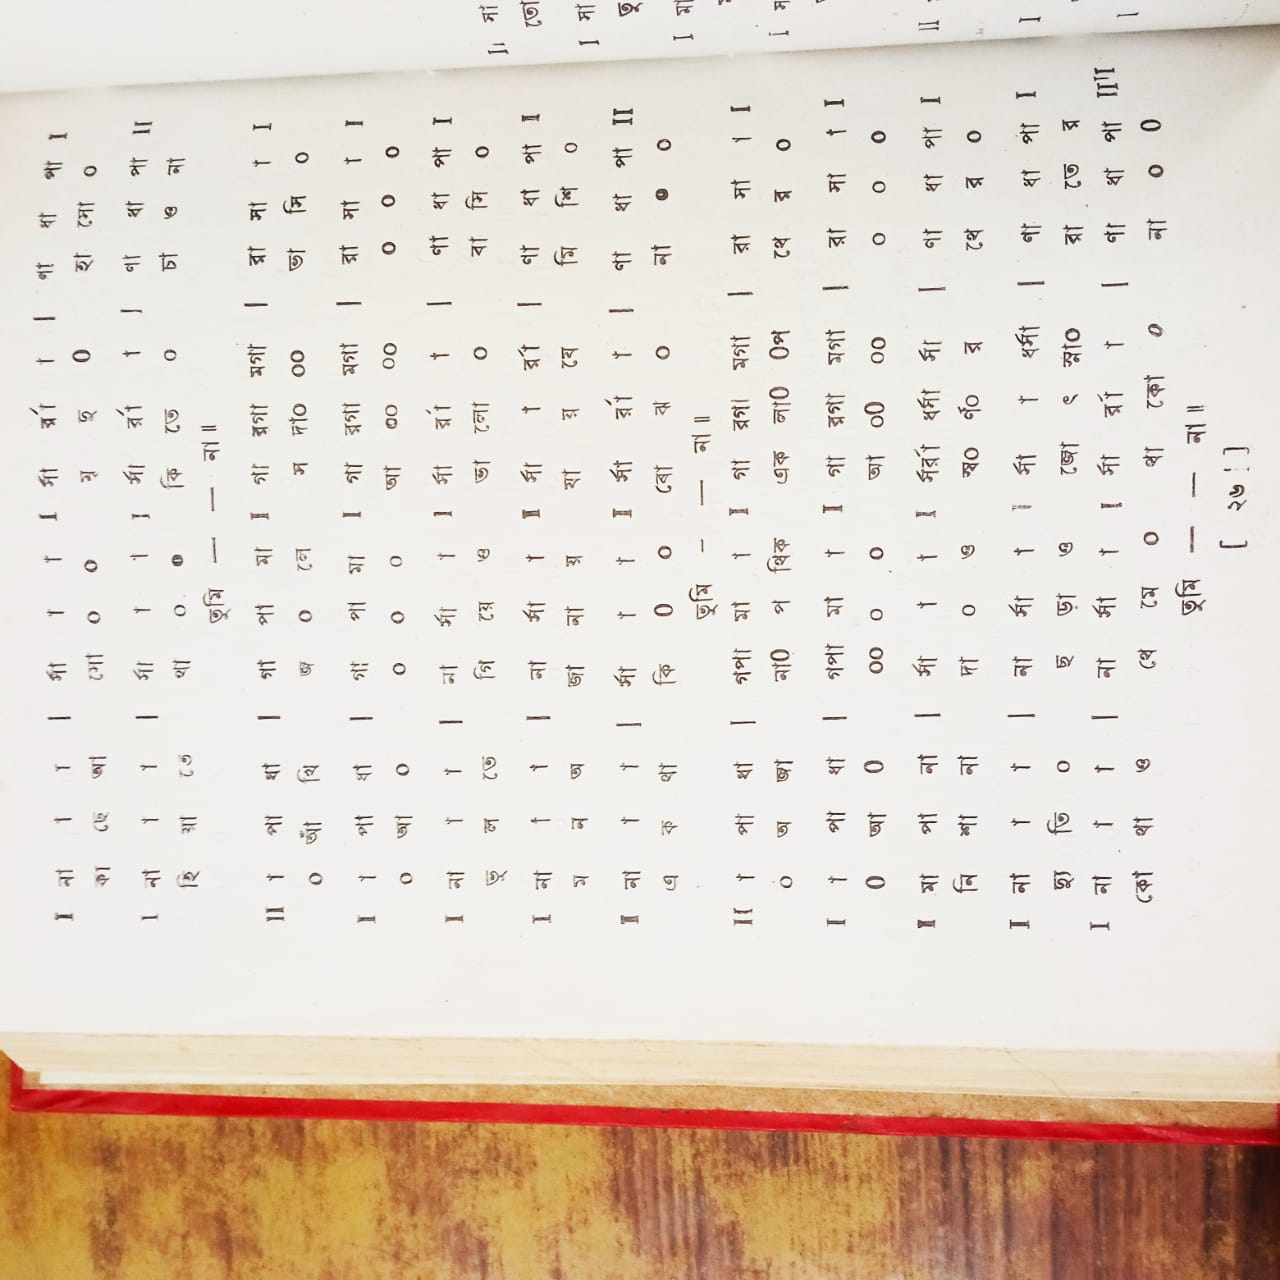 I না া া | র্সা া া I র্সা র্রা া | ণা ধা পা I
কা ছে আ সো ০ ০ য় দু ০ হা সো ০
I না া া | র্সা া া I র্সা র্রা া | ণা ধা পা II
হি য়া তে থা ০ ০ কি তে ০ চা ও না
তুমি — — না॥
II া পা ধা | গা পা মা I গা রগা মগা | রা সা া I
০ আঁ খি জ ০ লে স দা০ ০০ ভা সি ০
I া পা ধা | গা পা মা I গা রগা মগা | রা সা া I
০ আ ০ ০ ০ ০ আ ০০ ০০ ০ ০ ০
I না া া | না র্সা া I র্সা র্রা া | ণা ধা পা I
ভু ল তে গি য়ে ও ভা লো ০ বা সি ০
I না া া | না র্সা া I র্সা া র্রা | ণা ধা পা I
ম ন অ জা না য় যা য় যে মি শি ০
I না া া | র্সা া া I র্সা র্রা া | ণা ধা পা II
এ ক থা কি ০ ০ বো ঝ ০ না ০ ০
তুমি — — না॥
II া পা ধা | গপা মা া I গা রগা মগা | রা সা া I
০ অ জা না০ প থিক এক লা০ ০প থে র ০
I া পা ধা | গপা মা া I গা রগা মগা | রা সা া I
০ আ ০ ০০ ০ ০ আ ০০ ০০ ০ ০ ০
I মা পা না | র্সা া া I র্সর্রা ধর্সা র্সা | ণা ধা পা I
নি শা না দা ০ ও স্ব০ র্ণ০ র থে র ০
I না া া | না র্সা া I র্সা া ধর্সা | ণা ধা পা I
হ্যা তি ০ ছ ড়া ও জো ৎ স্না০ রা তে র
I না া া | না র্সা া I র্সা র্রা া | ণা ধা পা II II
কো থা ও থে মে ০ থা কো ০ না ০ ০
তুমি — — না॥
[ ২৬ ]